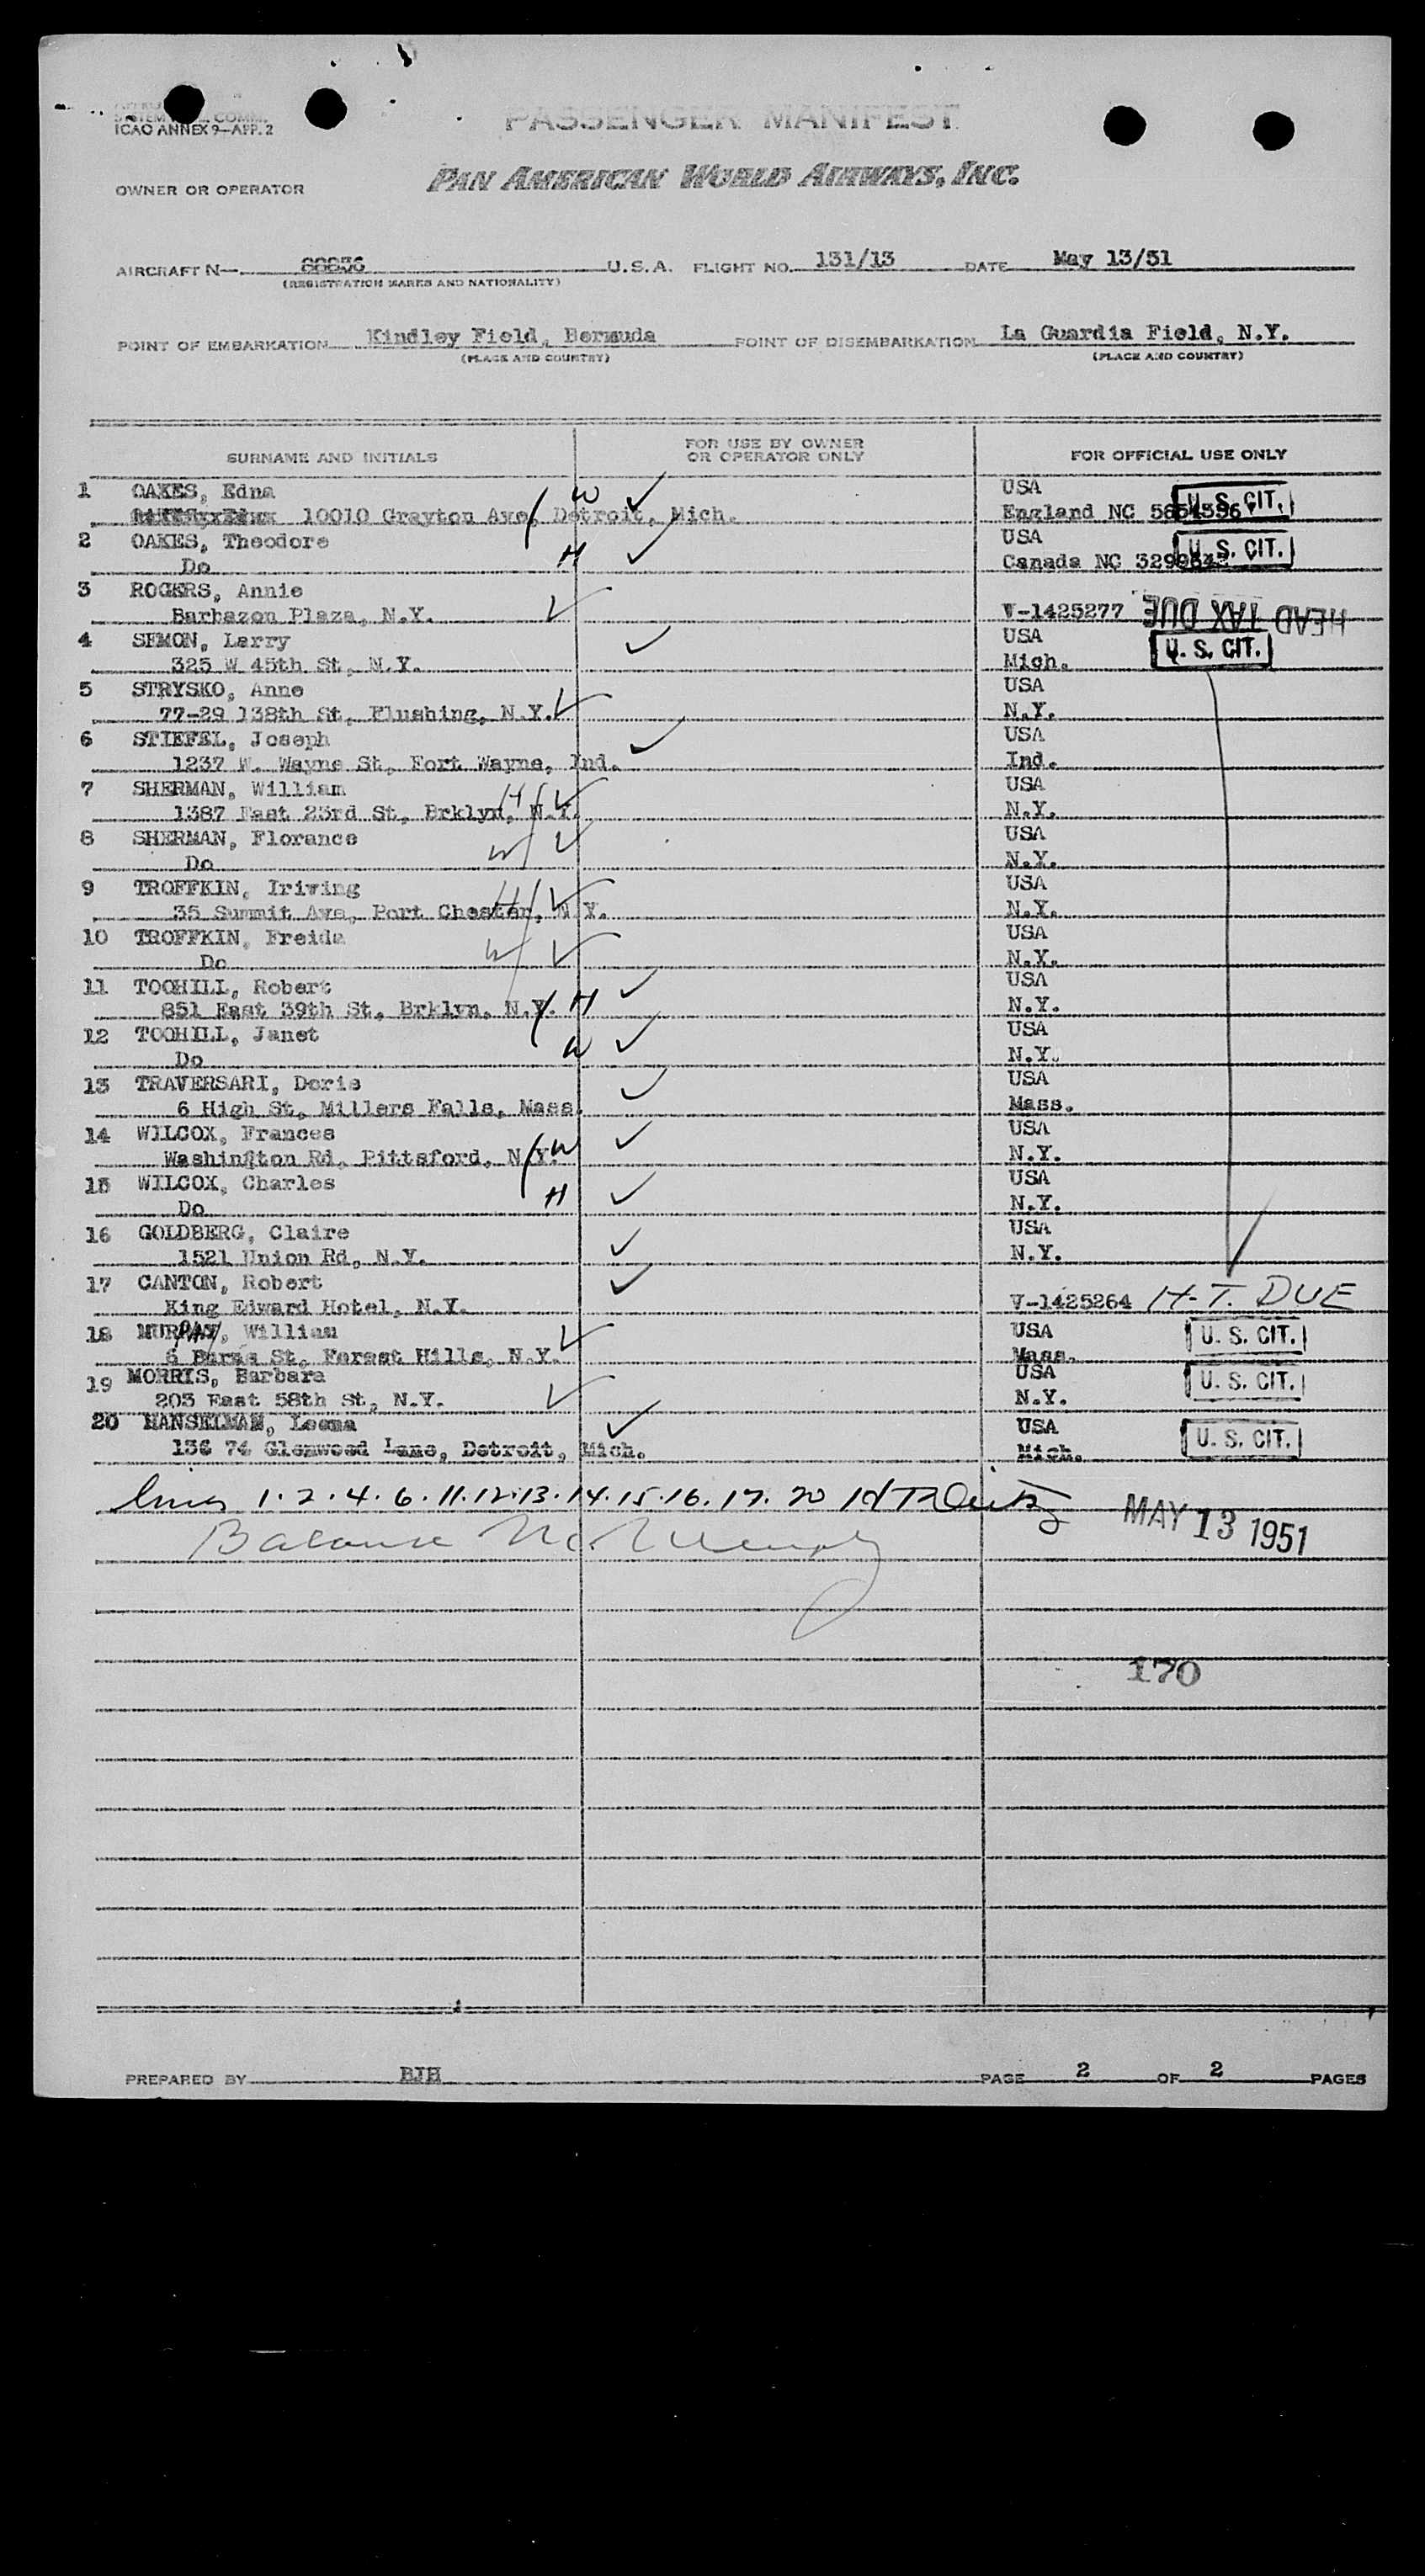 ICAO ANNEX 9—APP. 2
PASSENGER MANIFEST
OWNER OR OPERATOR PAN AMERICAN WORLD AIRWAYS, INC.
AIRCRAFT N— 88836 U.S.A. FLIGHT NO. 131/13 DATE May 13/51
(REGISTRATION MARKS AND NATIONALITY)
POINT OF EMBARKATION Kindley Field, Bermuda POINT OF DISEMBARKATION La Guardia Field, N.Y.
(PLACE AND COUNTRY) (PLACE AND COUNTRY)
SURNAME AND INITIALS FOR USE BY OWNER OR OPERATOR ONLY FOR OFFICIAL USE ONLY
1 OAKES, Edna W USA
10010 Grayton Ave, Detroit, Mich. England NC U.S. CIT.
2 OAKES, Theodore H USA
Do Canada NC U.S. CIT.
3 ROGERS, Annie
Barbazon Plaza, N.Y. V-1425277 HEAD TAX DUE
4 SEMON, Larry USA
325 W 45th St, N.Y. Mich. U.S. CIT.
5 STRYSKO, Anne USA
77-29 138th St, Flushing, N.Y. N.Y.
6 STIEFEL, Joseph USA
1237 W. Wayne St, Fort Wayne, Ind. Ind.
7 SHERMAN, William H USA
1387 East 23rd St, Brklyn, N.Y. N.Y.
8 SHERMAN, Florance W USA
Do N.Y.
9 TROFFKIN, Iriwing H USA
35 Summit Ave, Port Chester, N.Y. N.Y.
10 TROFFKIN, Freida W USA
Do N.Y.
11 TOOHILL, Robert USA
851 East 39th St, Brklyn, N.Y. H N.Y.
12 TOOHILL, Janet W USA
Do N.Y.
13 TRAVERSARI, Doris USA
6 High St, Millers Falls, Mass. Mass.
14 WILCOX, Frances USA
Washington Rd, Pittsford, N.Y. W N.Y.
15 WILCOX, Charles H USA
Do N.Y.
16 GOLDBERG, Claire USA
1521 Union Rd, N.Y. N.Y.
17 CANTON, Robert
King Edward Hotel, N.Y. V-1425264 H.T. DUE
18 William USA U.S. CIT.
6 Burns St, Forest Hills, N.Y. Mass.
19 MORRIS, Barbara USA U.S. CIT.
203 East 58th St, N.Y. N.Y.
20 HANSELMAN, Leona USA U.S. CIT.
136 74 Glenwood Lane, Detroit, Mich. Mich.
Lines 1.2.4.6.11.12.13.14.15.16.17.20
Balance
MAY 13 1951
170
PREPARED BY BJH PAGE 2 OF 2 PAGES